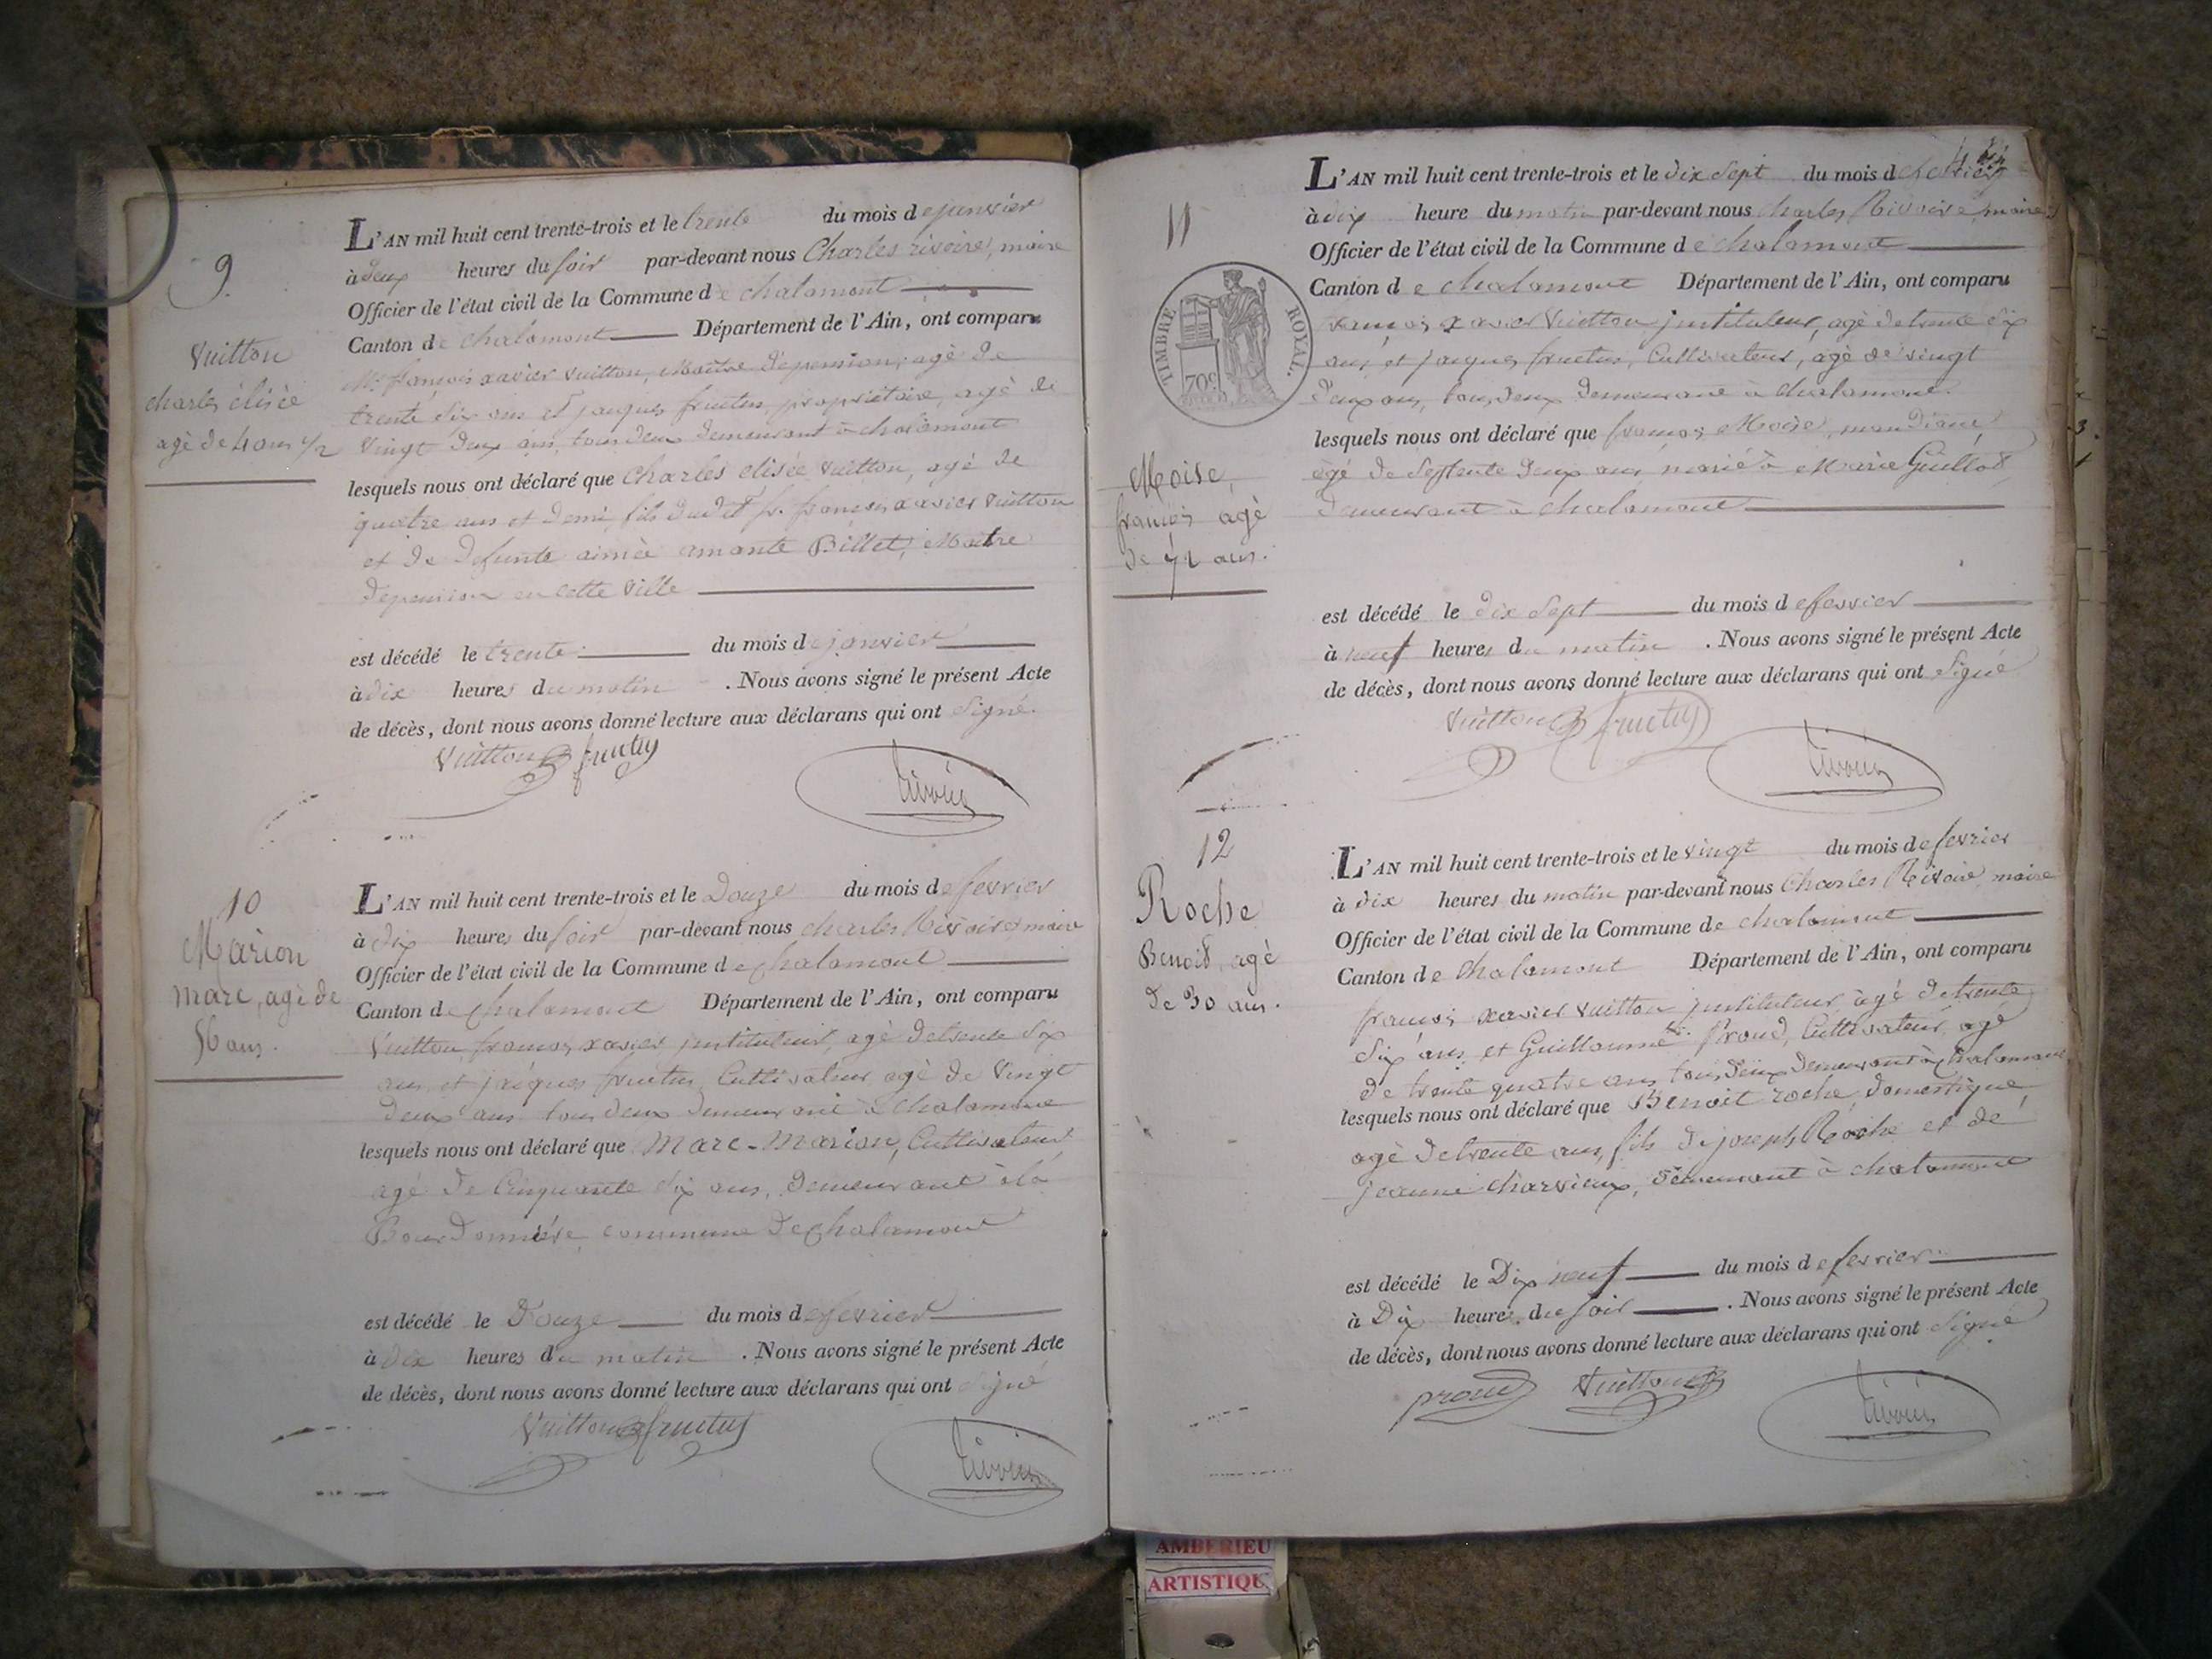 9.
Vuitton
charles élisée
agé de 4 ans 1/2
L'AN mil huit cent trente-trois et le trente du mois de janvier
à deux heures du soir par-devant nous Charles rivoire, maire
Officier de l'état civil de la Commune de chalamont
Canton de chalamont Département de l'Ain, ont comparu
Mr françois xavier vuitton, Maître depension, agé de
trente six ans et jacques fructus, propriétaire, agé de
vingt deux ans, tous deux demeurant à chalamont
lesquels nous ont déclaré que Charles elisée vuitton, agé de
quatre ans et demi, fils dudt sr. françois xavier vuitton
et de defunte aimée amante Billet, Maître
depension en cette ville
est décédé le trente du mois de janvier
à dix heures du matin . Nous avons signé le présent Acte
de décès, dont nous avons donné lecture aux déclarans qui ont signé.
Vuitton fructus
rivoire
10
Marion
marc, agé de
56 ans.
L'AN mil huit cent trente-trois et le Douze du mois de fevrier
à dix heures du soir par-devant nous charles Rivoire maire
Officier de l'état civil de la Commune de chalamont
Canton de chalamont Département de l'Ain, ont comparu
Vuitton françois xavier instituteur, agé detrente six
ans et jacques fructus Cultivateur agé de vingt
deux ans tous deux demeurant à chalamont
lesquels nous ont déclaré que Marc-Marion, Cultivateur
agé de Cinquante six ans, demeurant à la
Bourdonnière commune de chalamont
est décédé le Douze du mois de fevrier
à dix heures du matin . Nous avons signé le présent Acte
de décès, dont nous avons donné lecture aux déclarans qui ont signé
Vuitton fructus
rivoire
11
TIMBRE ROYAL.
70c
Moise,
françois agé
de 72 ans.
L'AN mil huit cent trente-trois et le dix sept du mois de fevrier
à dix heure du matin par-devant nous charles Rivoire, maire
Officier de l'état civil de la Commune de chalamont
Canton de chalamont Département de l'Ain, ont comparu
françois xavier Vuitton instituteur, agé detrente six
ans et jacques fructus, Cultivateur, agé de vingt
deux ans, tous deux demeurant à chalamont.
lesquels nous ont déclaré que françois Moise, mandiant
agé de septente deux ans, marié à Marie Guillot
demeurant à chalamont
est décédé le dix sept du mois de fevrier
à neuf heures du matin . Nous avons signé le présent Acte
de décès, dont nous avons donné lecture aux déclarans qui ont signé
Vuitton fructus
rivoire
12
Roche
Benoit, agé
de 30 ans.
L'AN mil huit cent trente-trois et le vingt du mois de fevrier
à dix heures du matin par-devant nous Charles Rivoire, maire
Officier de l'état civil de la Commune de chalamont
Canton de chalamont Département de l'Ain, ont comparu
françois xavier Vuitton instituteur, agé detrente
six ans, et Guillaume Proud, Cultivateur, agé
de trente quatre ans tous deux demeurant à chalamont
lesquels nous ont déclaré que Benoit roche, domestique,
agé detrente ans, fils de joseph Roche et de
jeanne charvieux, demeurant à chalamont
est décédé le Dix neuf du mois de fevrier
à Dix heures du soir . Nous avons signé le présent Acte
de décès, dont nous avons donné lecture aux déclarans qui ont signé
proud Vuitton
rivoire
AMBERIEU
ARTISTIQU